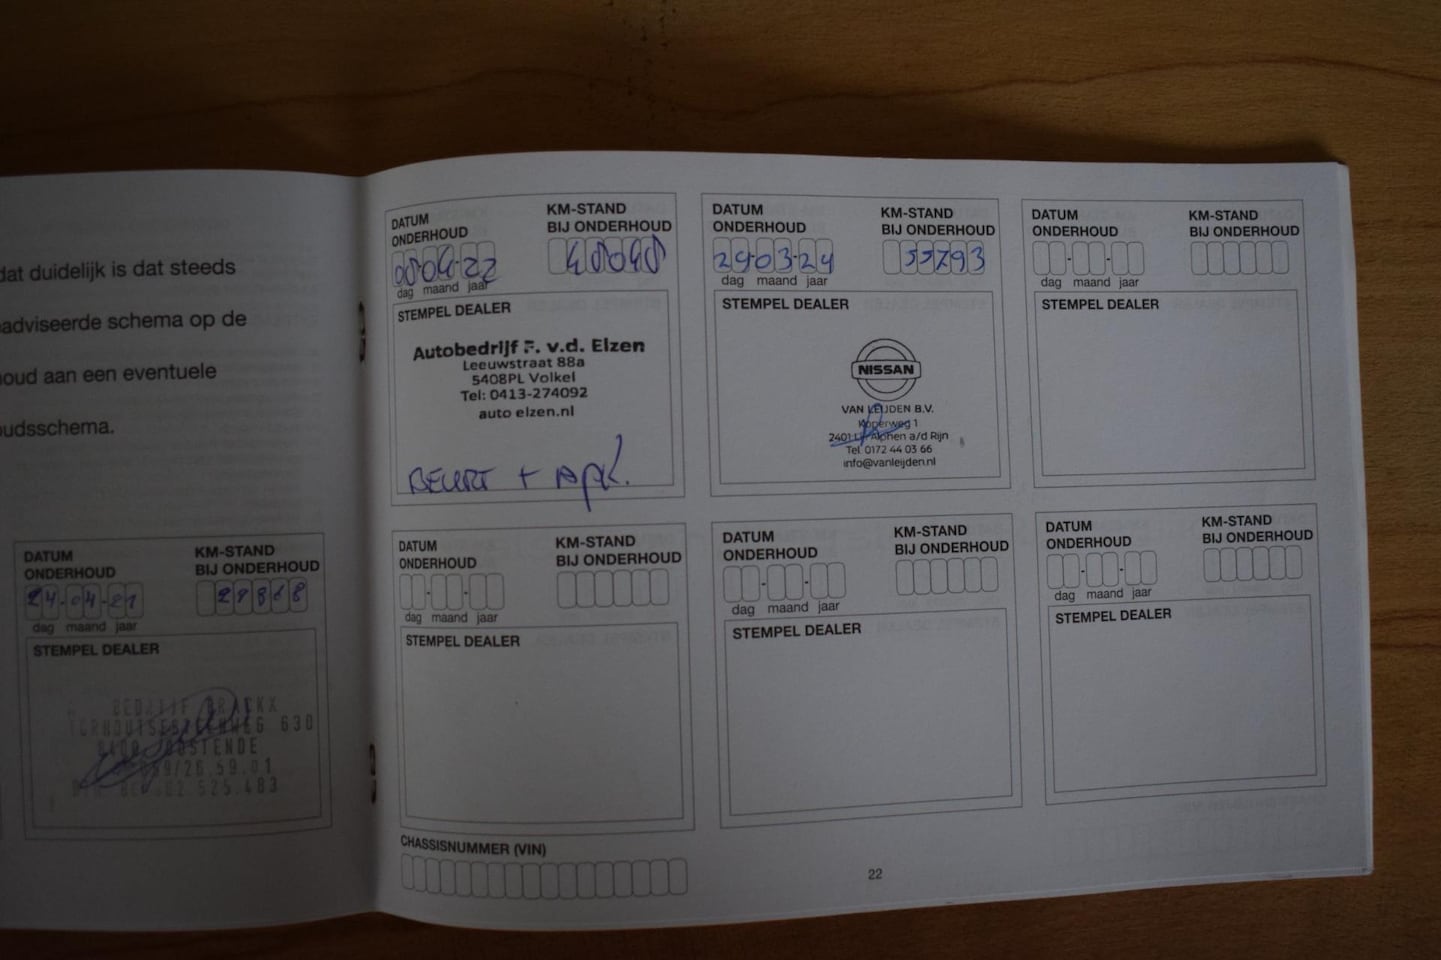 dat duidelijk is dat steeds
adviseerde schema op de
oud aan een eventuele
udsschema.
DATUM ONDERHOUD
KM-STAND BIJ ONDERHOUD
24-04-21
dag maand jaar
STEMPEL DEALER
BEDRIJF BRACKX
630
OOSTENDE
DATUM ONDERHOUD
KM-STAND BIJ ONDERHOUD
08-04-22
dag maand jaar
STEMPEL DEALER
Autobedrijf F. v.d. Elzen
Leeuwstraat 88a
5408PL Volkel
Tel: 0413-274092
auto elzen.nl
BEURT + APK.
DATUM ONDERHOUD
KM-STAND BIJ ONDERHOUD
29-03-24
55793
dag maand jaar
STEMPEL DEALER
NISSAN
VAN LEIJDEN B.V.
Koperweg 1
2401 Alphen a/d Rijn
Tel. 0172 44 03 66
info@vanleijden.nl
DATUM ONDERHOUD
KM-STAND BIJ ONDERHOUD
dag maand jaar
STEMPEL DEALER
DATUM ONDERHOUD
KM-STAND BIJ ONDERHOUD
dag maand jaar
STEMPEL DEALER
DATUM ONDERHOUD
KM-STAND BIJ ONDERHOUD
dag maand jaar
STEMPEL DEALER
DATUM ONDERHOUD
KM-STAND BIJ ONDERHOUD
dag maand jaar
STEMPEL DEALER
CHASSISNUMMER (VIN)
22